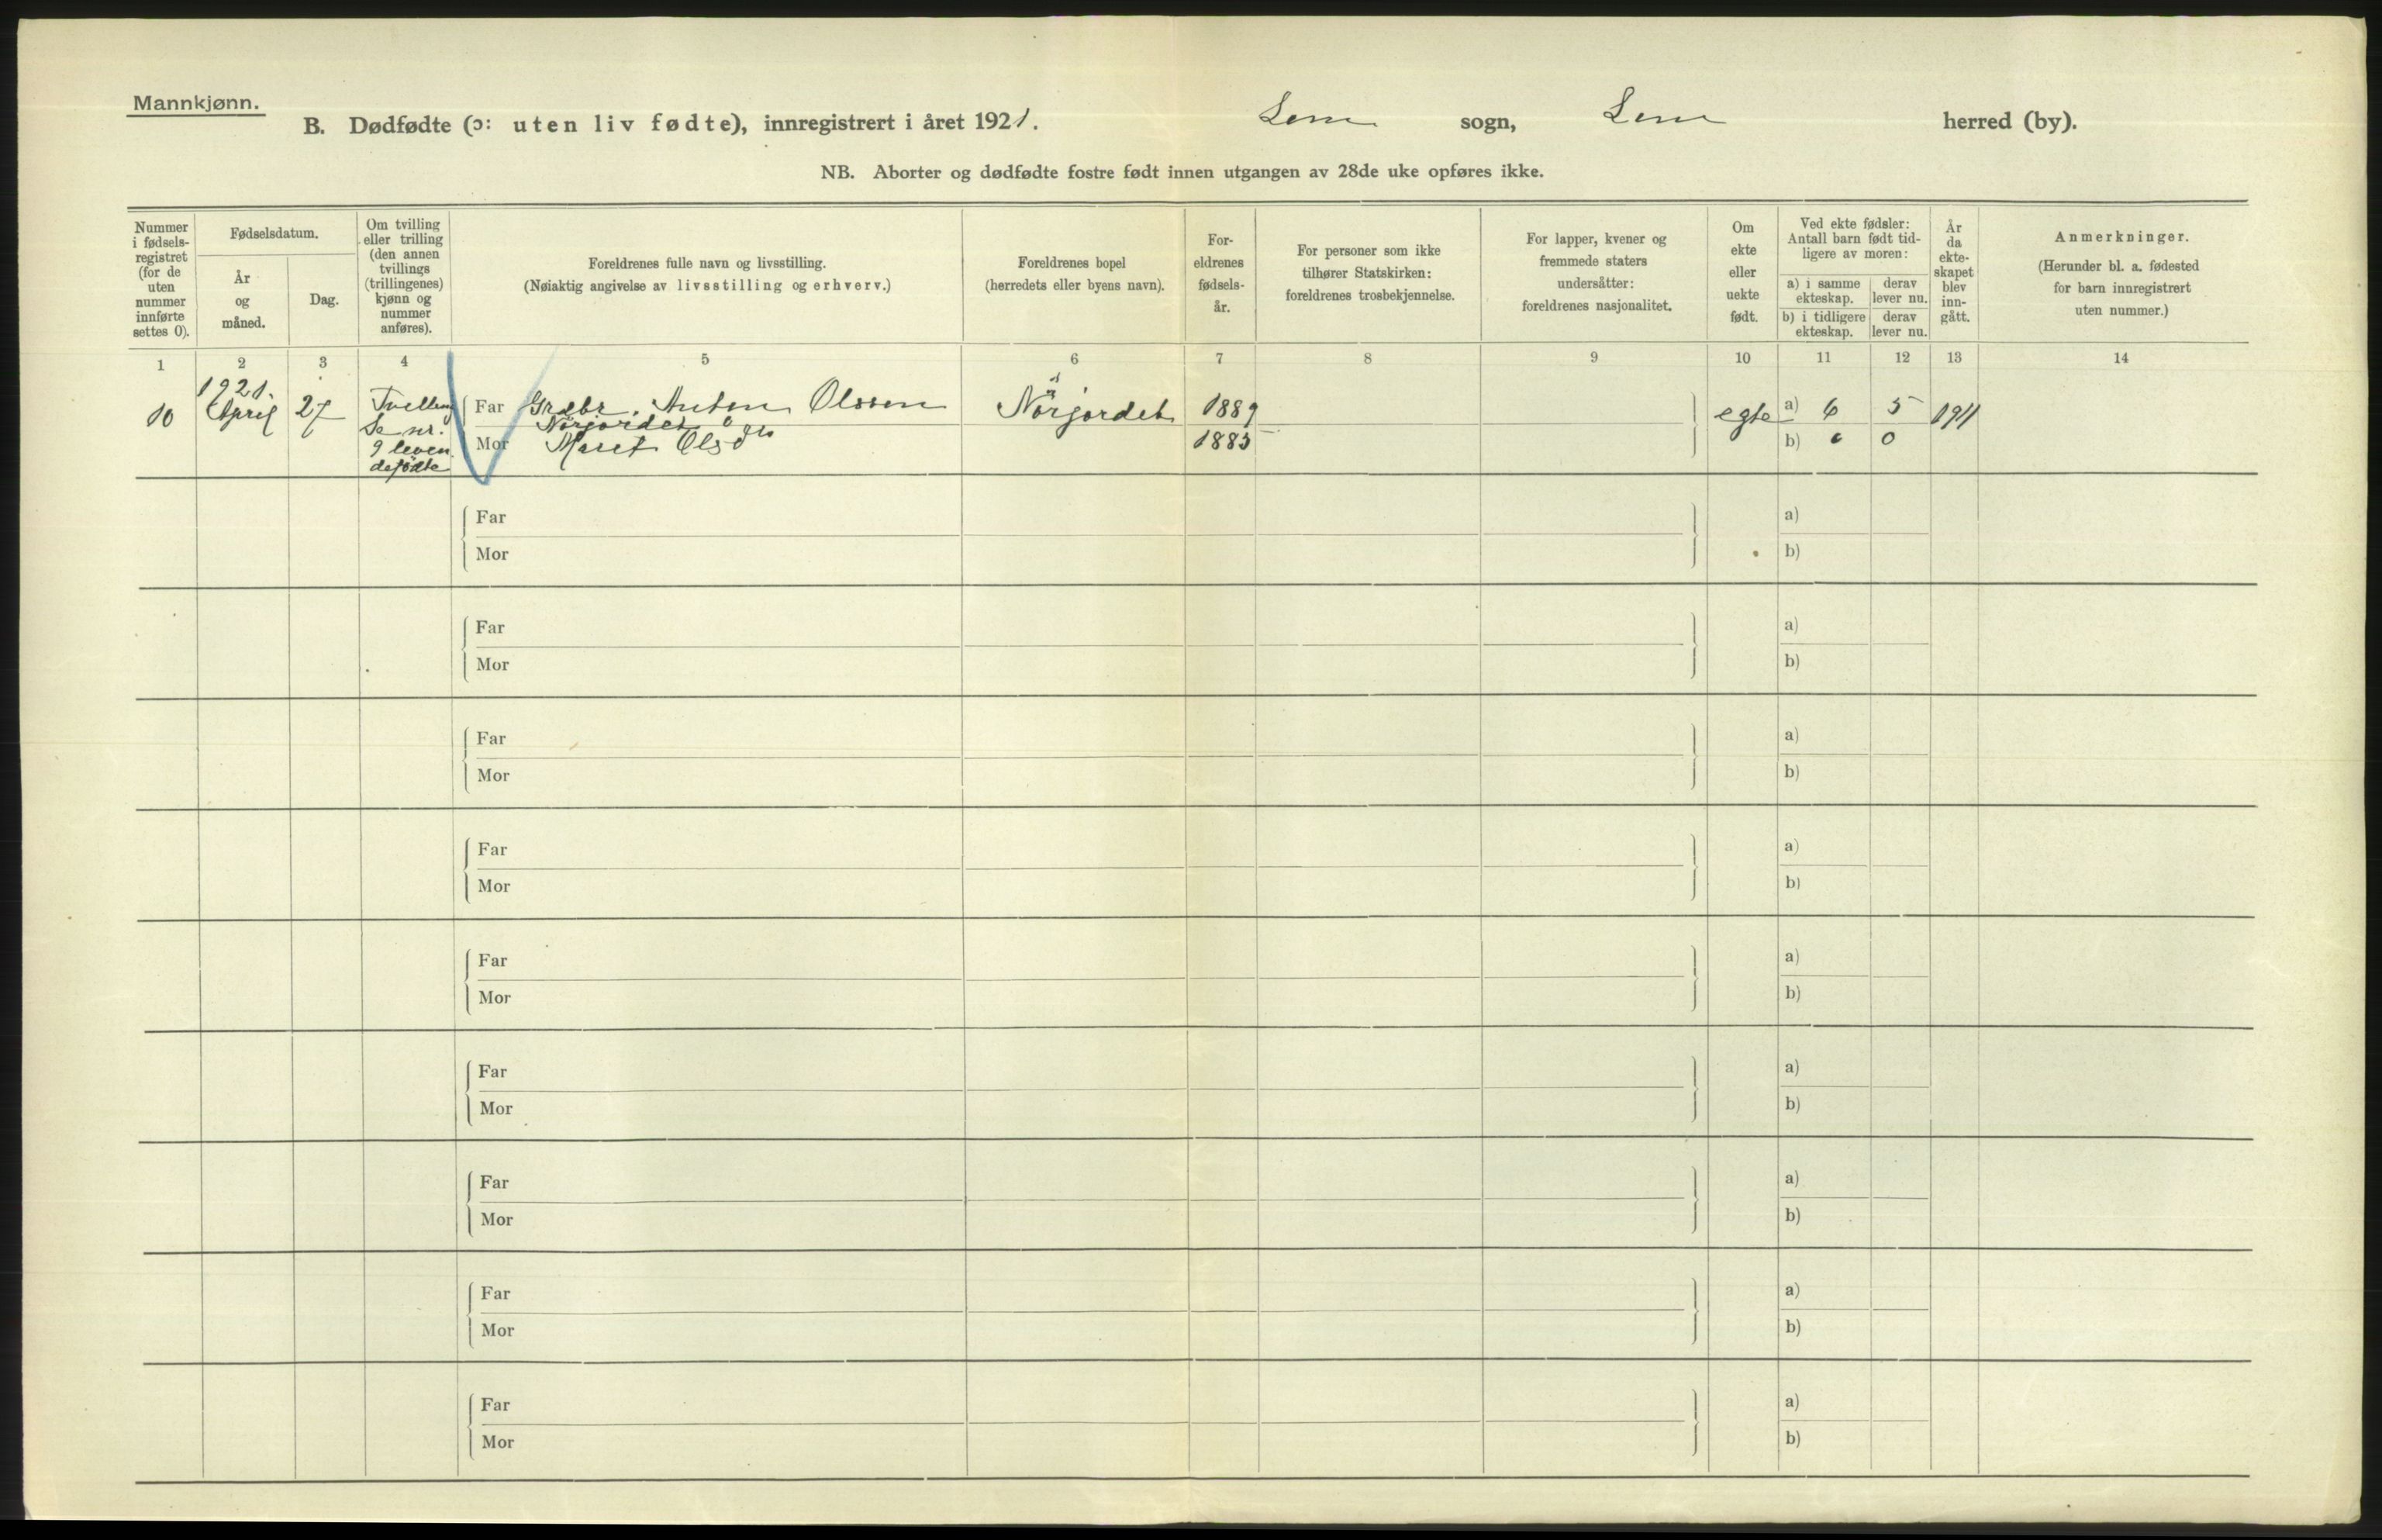 Mannkjønn.
B. Dødfødte (ɔ: uten liv fødte), innregistrert i året 1921. Lom sogn, Lom herred (by).
NB. Aborter og dødfødte fostre født innen utgangen av 28de uke opføres ikke.
Nummer i fødsels-registret (for de uten nummer innførte settes 0).
Fødselsdatum.
År og måned.
Dag.
Om tvilling eller trilling (den annen tvillings (trillingenes) kjønn og nummer anføres).
Foreldrenes fulle navn og livsstilling.
(Nøiaktig angivelse av livsstilling og erhverv.)
Foreldrenes bopel
(herredets eller byens navn).
For-eldrenes fødsels-år.
For personer som ikke tilhører Statskirken: foreldrenes trosbekjennelse.
For lapper, kvener og fremmede staters undersåtter: foreldrenes nasjonalitet.
Om ekte eller uekte født.
Ved ekte fødsler: Antall barn født tid-ligere av moren:
a) i samme ekteskap.
derav lever nu.
b) i tidligere ekteskap.
derav lever nu.
År da ekte-skapet blev inn-gått.
Anmerkninger.
(Herunder bl. a. fødested for barn innregistrert uten nummer.)
1 2 3 4 5 6 7 8 9 10 11 12 13 14
1921.
10 April 27 Tvilling Far Grdbr. Anton Olssen Nørjordet 1889 egte a) 6 5 1911
Se nr. Nørjordet
9 leven Mor Marit Olsdtr 1885 b) 0 0
defødte
Far a)
Mor b)
Far a)
Mor b)
Far a)
Mor b)
Far a)
Mor b)
Far a)
Mor b)
Far a)
Mor b)
Far a)
Mor b)
Far a)
Mor b)
Far a)
Mor b)